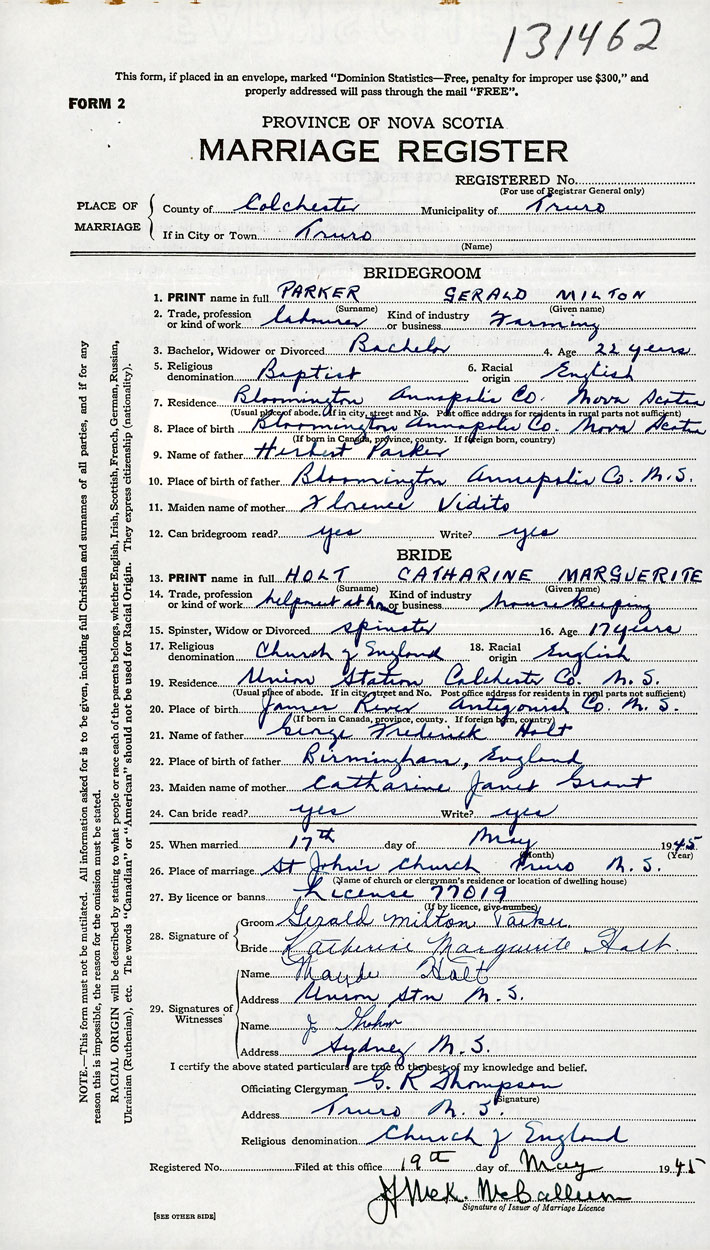 131462
This form, if placed in an envelope, marked "Dominion Statistics—Free, penalty for improper use $300," and
properly addressed will pass through the mail "FREE".
FORM 2
PROVINCE OF NOVA SCOTIA
MARRIAGE REGISTER
REGISTERED No.
(For use of Registrar General only)
PLACE OF MARRIAGE
County of Colchester Municipality of Truro
If in City or Town Truro
(Name)
BRIDEGROOM
1. PRINT name in full PARKER GERALD MILTON
(Surname) (Given name)
2. Trade, profession or kind of work labourer Kind of industry or business Farming
3. Bachelor, Widower or Divorced Bachelor 4. Age 22 years
5. Religious denomination Baptist 6. Racial origin English
7. Residence Bloomington Annapolis Co. Nova Scotia
(Usual place of abode. If in city, street and No. Post office address for residents in rural parts not sufficient)
8. Place of birth Bloomington Annapolis Co. Nova Scotia
(If born in Canada, province, county. If foreign born, country)
9. Name of father Herbert Parker
10. Place of birth of father Bloomington Annapolis Co. N.S.
11. Maiden name of mother Florence Vidito
12. Can bridegroom read? yes Write? yes
BRIDE
13. PRINT name in full HOLT CATHARINE MARGUERITE
(Surname) (Given name)
14. Trade, profession or kind of work helpmeet at home Kind of industry or business housekeeping
15. Spinster, Widow or Divorced spinster 16. Age 17 years
17. Religious denomination Church of England 18. Racial origin English
19. Residence Union Station Colchester Co. N.S.
(Usual place of abode. If in city, street and No. Post office address for residents in rural parts not sufficient)
20. Place of birth James River Antigonish Co. N.S.
(If born in Canada, province, county. If foreign born, country)
21. Name of father George Frederick Holt
22. Place of birth of father Birmingham, England
23. Maiden name of mother Catharine Janet Grant
24. Can bride read? yes Write? yes
25. When married 17th day of May 1945
(Month) (Year)
26. Place of marriage St John's Church Truro N.S.
(Name of church or clergyman's residence or location of dwelling house)
27. By licence or banns License 77019
(If by licence, give number)
28. Signature of Groom Gerald Milton Parker
Bride Katherine Marguerite Holt.
29. Signatures of Witnesses
Name Holt
Address Union Stn N.S.
Name J
Address Sydney N.S.
I certify the above stated particulars are true to the best of my knowledge and belief.
Officiating Clergyman G. R Thompson
(Signature)
Address Truro N.S.
Religious denomination Church of England
Registered No. Filed at this office 19th day of May 1945
McK. McCallum
Signature of Issuer of Marriage Licence
[SEE OTHER SIDE]
NOTE.—This form must not be mutilated. All information asked for is to be given, including full Christian and surnames of all parties, and if for any
reason this is impossible, the reason for the omission must be stated.
RACIAL ORIGIN will be described by stating to what people or race each of the parents belongs, whether English, Irish, Scottish, French, German, Russian,
Ukrainian (Ruthenian), etc. The words "Canadian" or "American" should not be used for Racial Origin. They express citizenship (nationality).